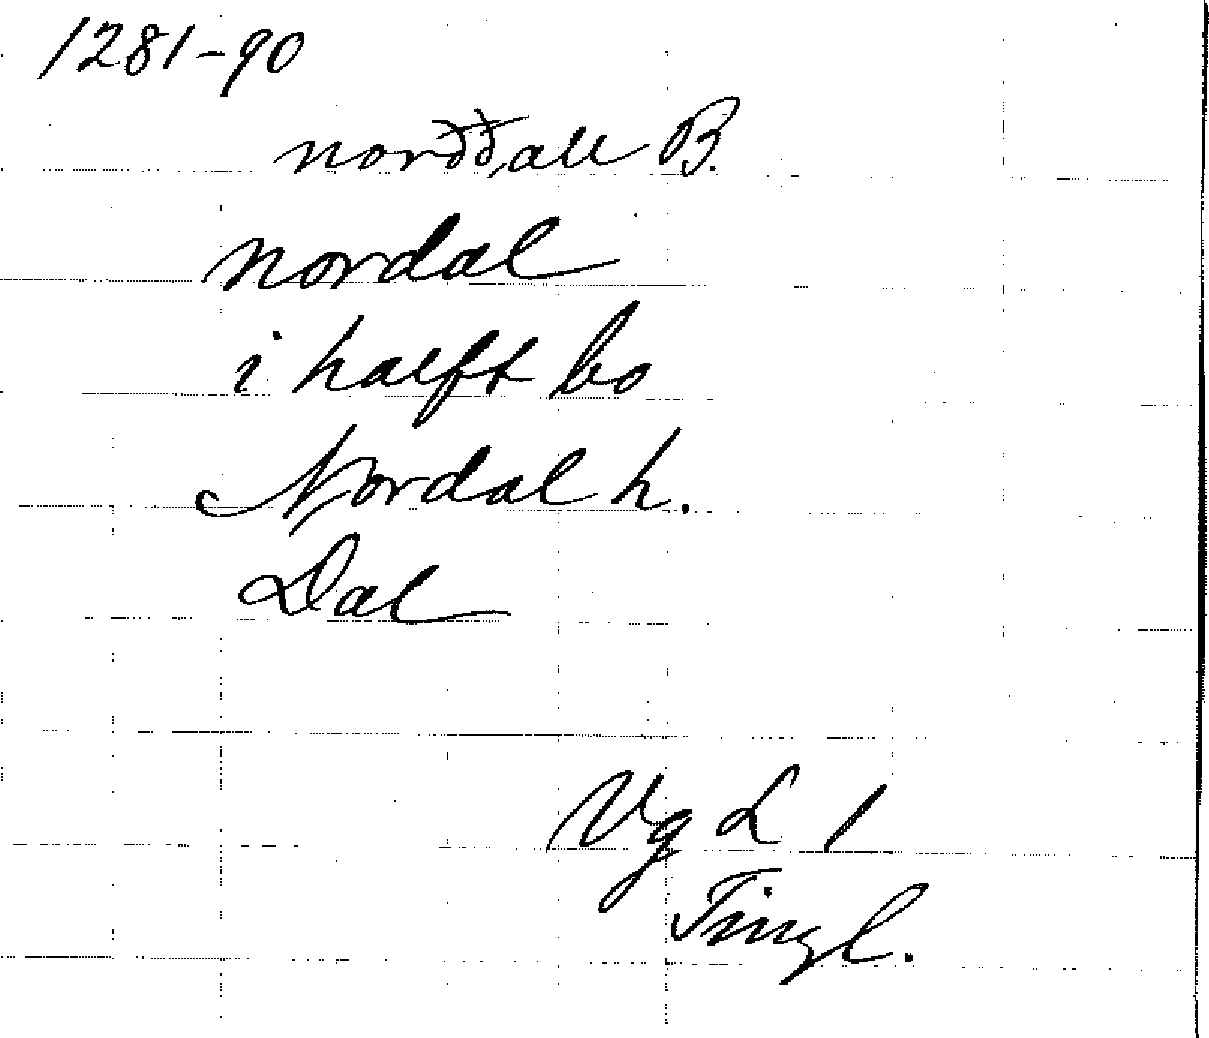 1281-90
norðꝺall B.
Nordal
i halft bo
Nordal h.
Dal
Vg L 1
Tingl.